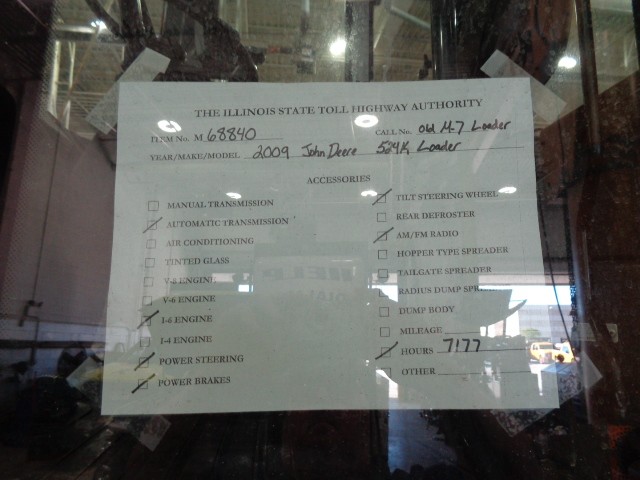 THE ILLINOIS STATE TOLL HIGHWAY AUTHORITY
ITEM No. M 68840 CALL No. Old M-7 Loader
YEAR/MAKE/MODEL 2009 John Deere 524K Loader
ACCESSORIES
MANUAL TRANSMISSION
AUTOMATIC TRANSMISSION
AIR CONDITIONING
TINTED GLASS
V-8 ENGINE
V-6 ENGINE
I-6 ENGINE
I-4 ENGINE
POWER STEERING
POWER BRAKES
TILT STEERING WHEEL
REAR DEFROSTER
AM/FM RADIO
HOPPER TYPE SPREADER
TAILGATE SPREADER
RADIUS DUMP SPREADER
DUMP BODY
MILEAGE
HOURS 7177
OTHER